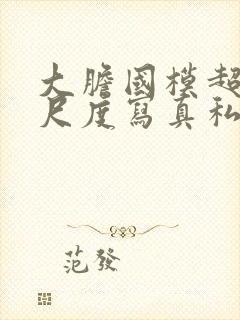 大膽國模超
尺度寫真私
范發